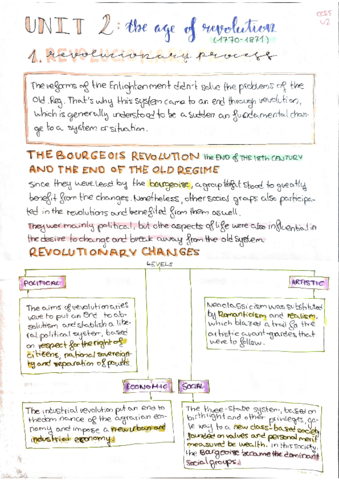 CCSS
U2
UNIT 2: the age of revolution
(1770-1871)
1. revolutionary process
The reforms of the Enlightenment didn't solve the problems of the
Old Reg. That's why this system came to an end through revolution,
which is generally understood to be a sudden an fundamental chan
ge to a system or situation.
THE BOURGEOIS REVOLUTION the END OF THE 18TH CENTURY
AND THE END OF THE OLD REGIME
Since they were lead by the bourgeoise, a group that stood to greatly
benefit from the changes. Nonetheless, other social groups also participa-
ted in the revolutions and benefited from them aswell.
They were mainly political, but othe aspects of life were also influential in
the desire to change and break away from the old system
REVOLUTIONARY CHANGES
LEVELS
POLITICAL
The aims of revolutionaries
were to put an end to ab-
solutism and stablish a libe-
ral political system, based
on respect for the right of
citizens, national sovereign-
ty and separation of powers
ARTISTIC
Neoclassicism was substituted
by Romanticism and realism,
which blazed a trail for the
artistic avant-gardes that
were to follow.
ECONOMIC
The industrial revolution put an end to
the dominance of the agrarian eco-
nomy and impose a new urban and
industrial economy.
SOCIAL
The three-state system, based on
birthright and other privileges, ga-
ve way to a new class-based society
founded on values and personal merit
measured by wealth. In this society
the Bourgeoise became the dominant
social groups.